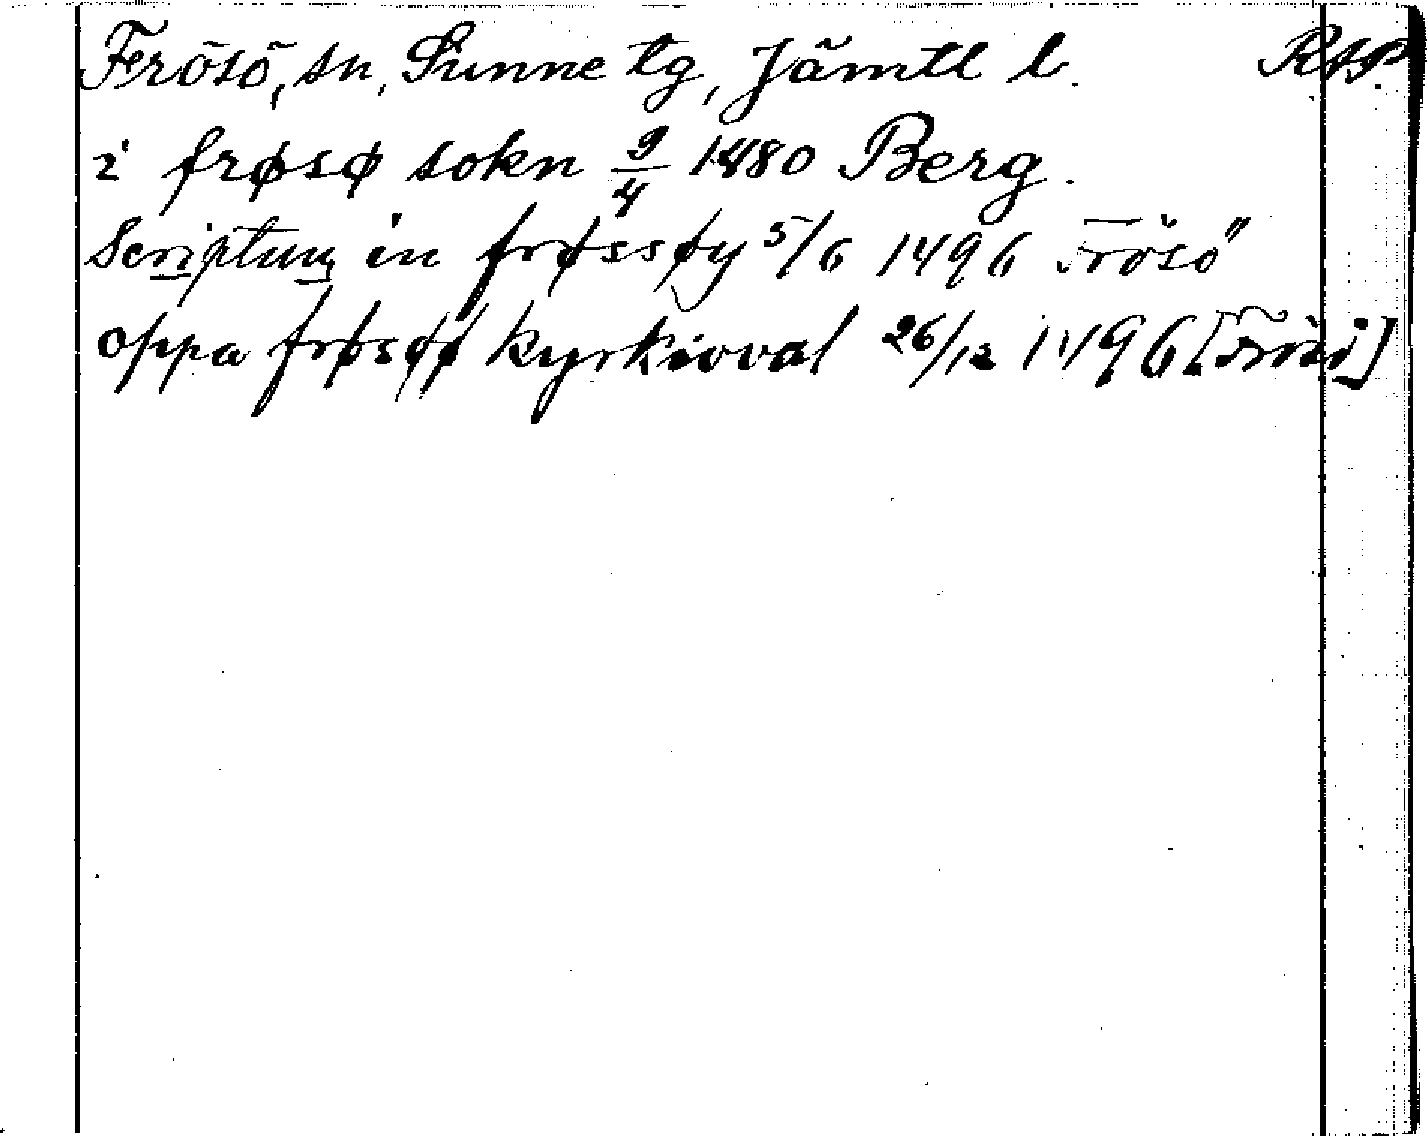 Frösö, sn, Sunne tg, Jämtl l. RAp.
i frøsø sokn 9/4 1480 Berg.
Scriptum in frøssøy 5/6 1496 Frösö
oppa frøsøø kyrkioval 26/12 1496 [Frösö]